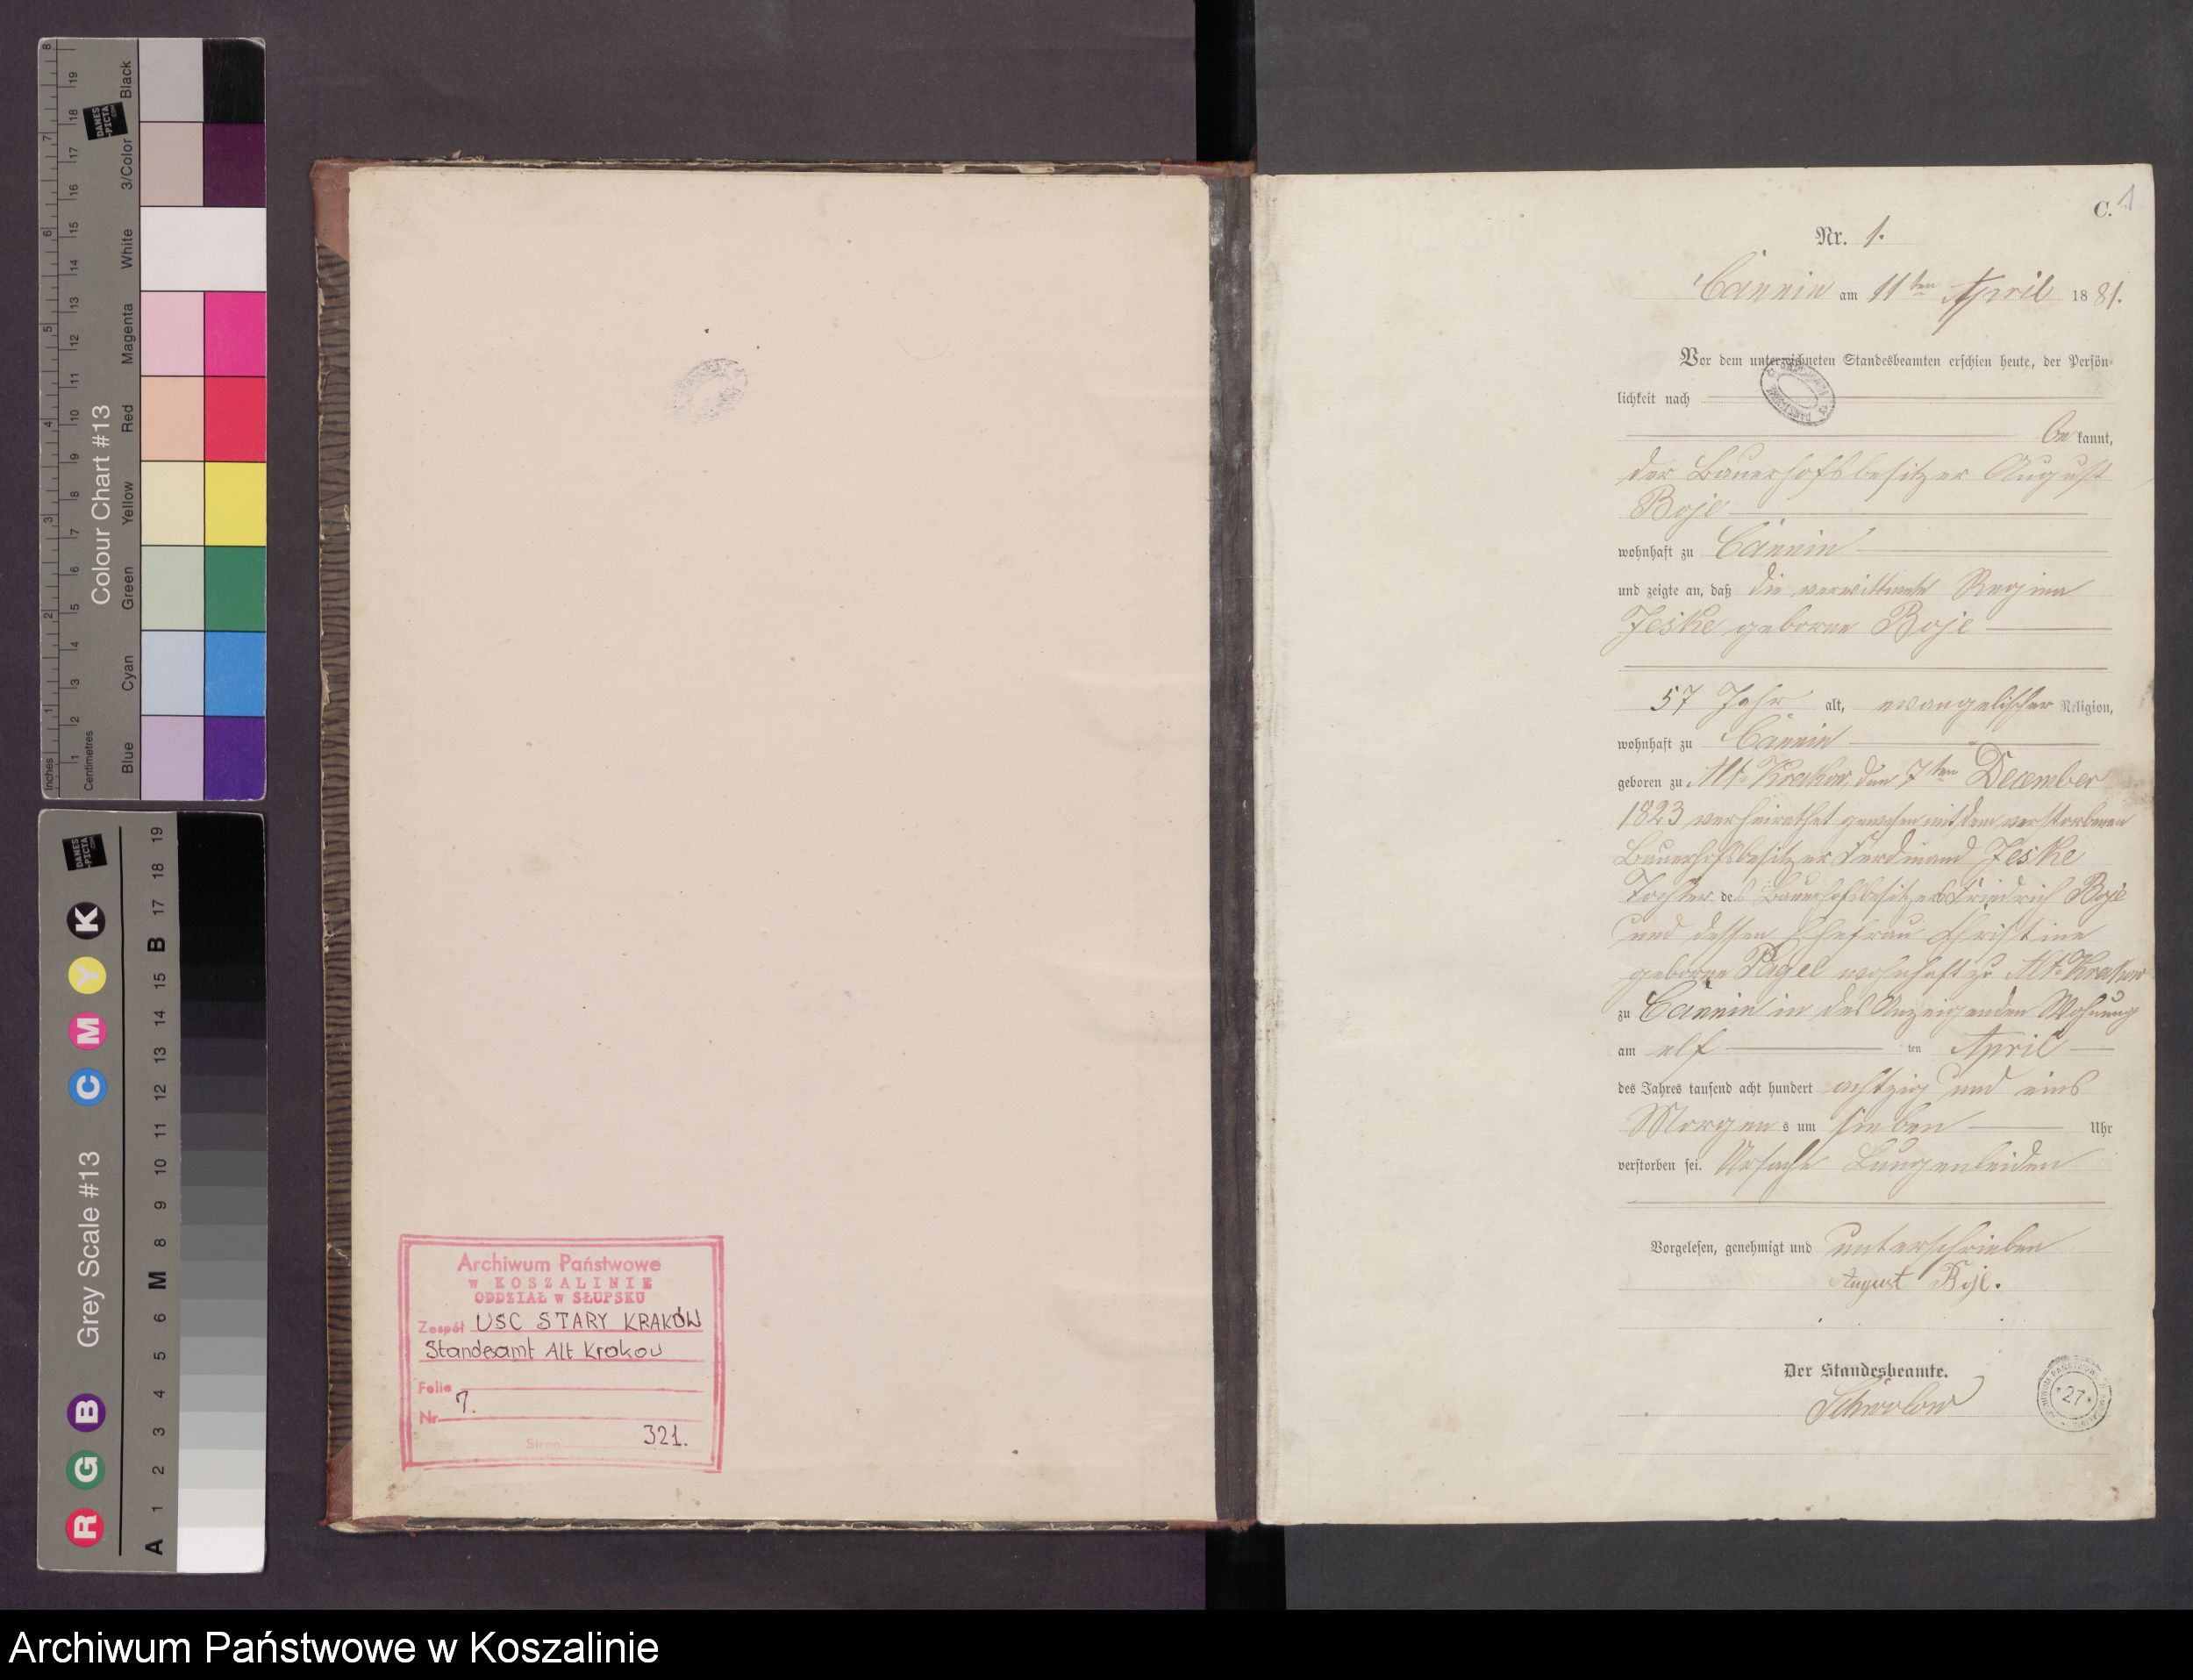 Archiwum Państwowe
w KOSZALINIE
ODDZIAŁ w SŁUPSKU
Zespół USC STARY KRAKÓW
Standesamt Alt Krakow
Folio
Nr 7.
Stron 321.
C. 1
Nr. 1.
Cannin am 11ten April 1881.
Vor dem unterzeichneten Standesbeamten erschien heute, der Persön-
lichkeit nach
be kannt,
der Bauerhofsbesitzer August
Boje
wohnhaft zu Cannin
und zeigte an, daß die verwittwete Regine
Jeske geborne Boje
57 Jahr alt, evangelischer Religion,
wohnhaft zu Cannin
geboren zu Alt-Krakow, den 7ten December
1823 verheirathet gewesen mit dem verstorbenen
Bauerhofsbesitzer Ferdinand Jeske
Tochter des Bauerhofsbesitzers Friedrich Boje
und dessen Ehefrau Christine
geborne Pagel wohnhaft zu Alt-Krakow
zu Cannin in des Anzeigenden Wohnung
am elf ten April
des Jahres tausend acht hundert achtzig und eins
Morgen s um sieben Uhr
verstorben sei. Ursache Lungenleiden
Vorgelesen, genehmigt und unterschrieben
August Boje.
Der Standesbeamte.
Schwolow
27
Colour Chart #13
Inches
Centimetres
Blue
Cyan
Green
Yellow
Red
Magenta
White
3/Color
Black
DANES
-PICTA
.COM
Grey Scale #13
R G B C M Y K
A 1 2 3 4 5 6 M 8 9 10 11 12 13 14 15 B 17 18 19
Archiwum Państwowe w Koszalinie